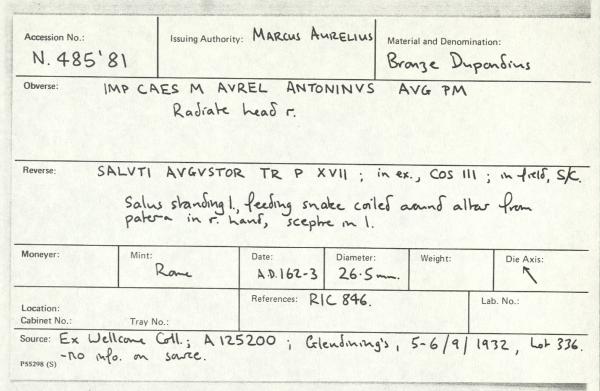 Accession No.:
N. 485'81
Issuing Authority: MARCUS AURELIUS
Material and Denomination:
Bronze Dupondius
Obverse: IMP CAES M AVREL ANTONINVS AVG PM
Radiate head r.
Reverse: SALVTI AVGVSTOR TR P XVII ; in ex., COS III ; in field, S/C.
Salus standing l., feeding snake coiled around altar from
patera in r. hand, sceptre in l.
Moneyer:
Mint:
Rome
Date:
A.D. 162-3
Diameter:
26.5mm.
Weight:
Die Axis:
↖
Location:
Cabinet No.: Tray No.:
References: RIC 846.
Lab. No.:
Source: Ex Wellcome Coll.; A 125200 ; Glendining's, 5-6/9/1932, Lot 336.
-no info. on source.
P55298 (S)